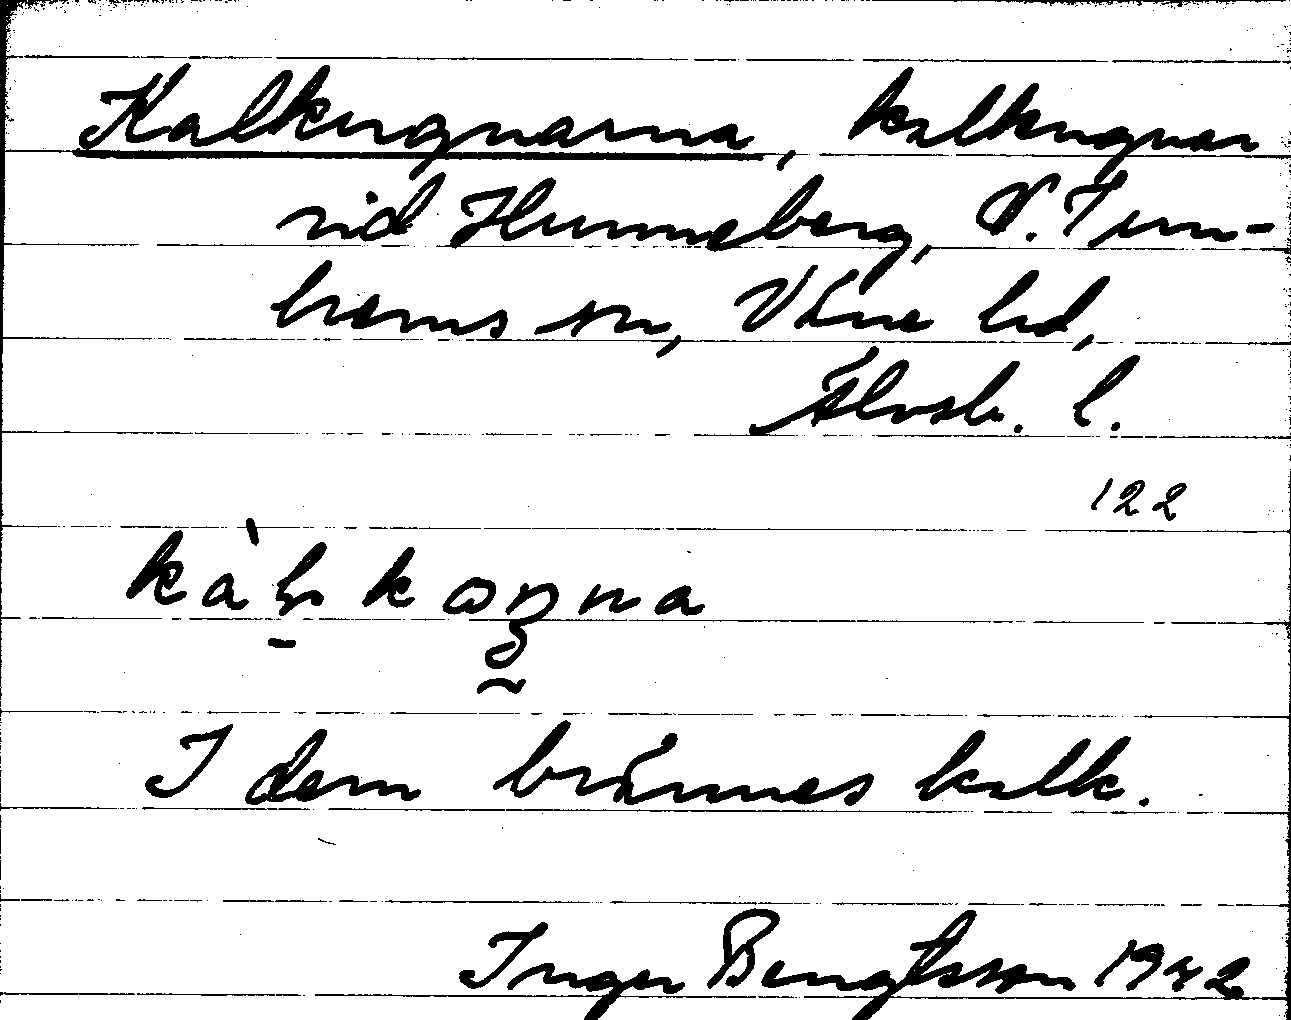 Kalkugnarna, kalkugnar
vid Hunneberg, V. Tun-
hems sn, Väne hd,
Älvsb. l.
122
I dem brännes kalk.
Inger Bengtsson 1942